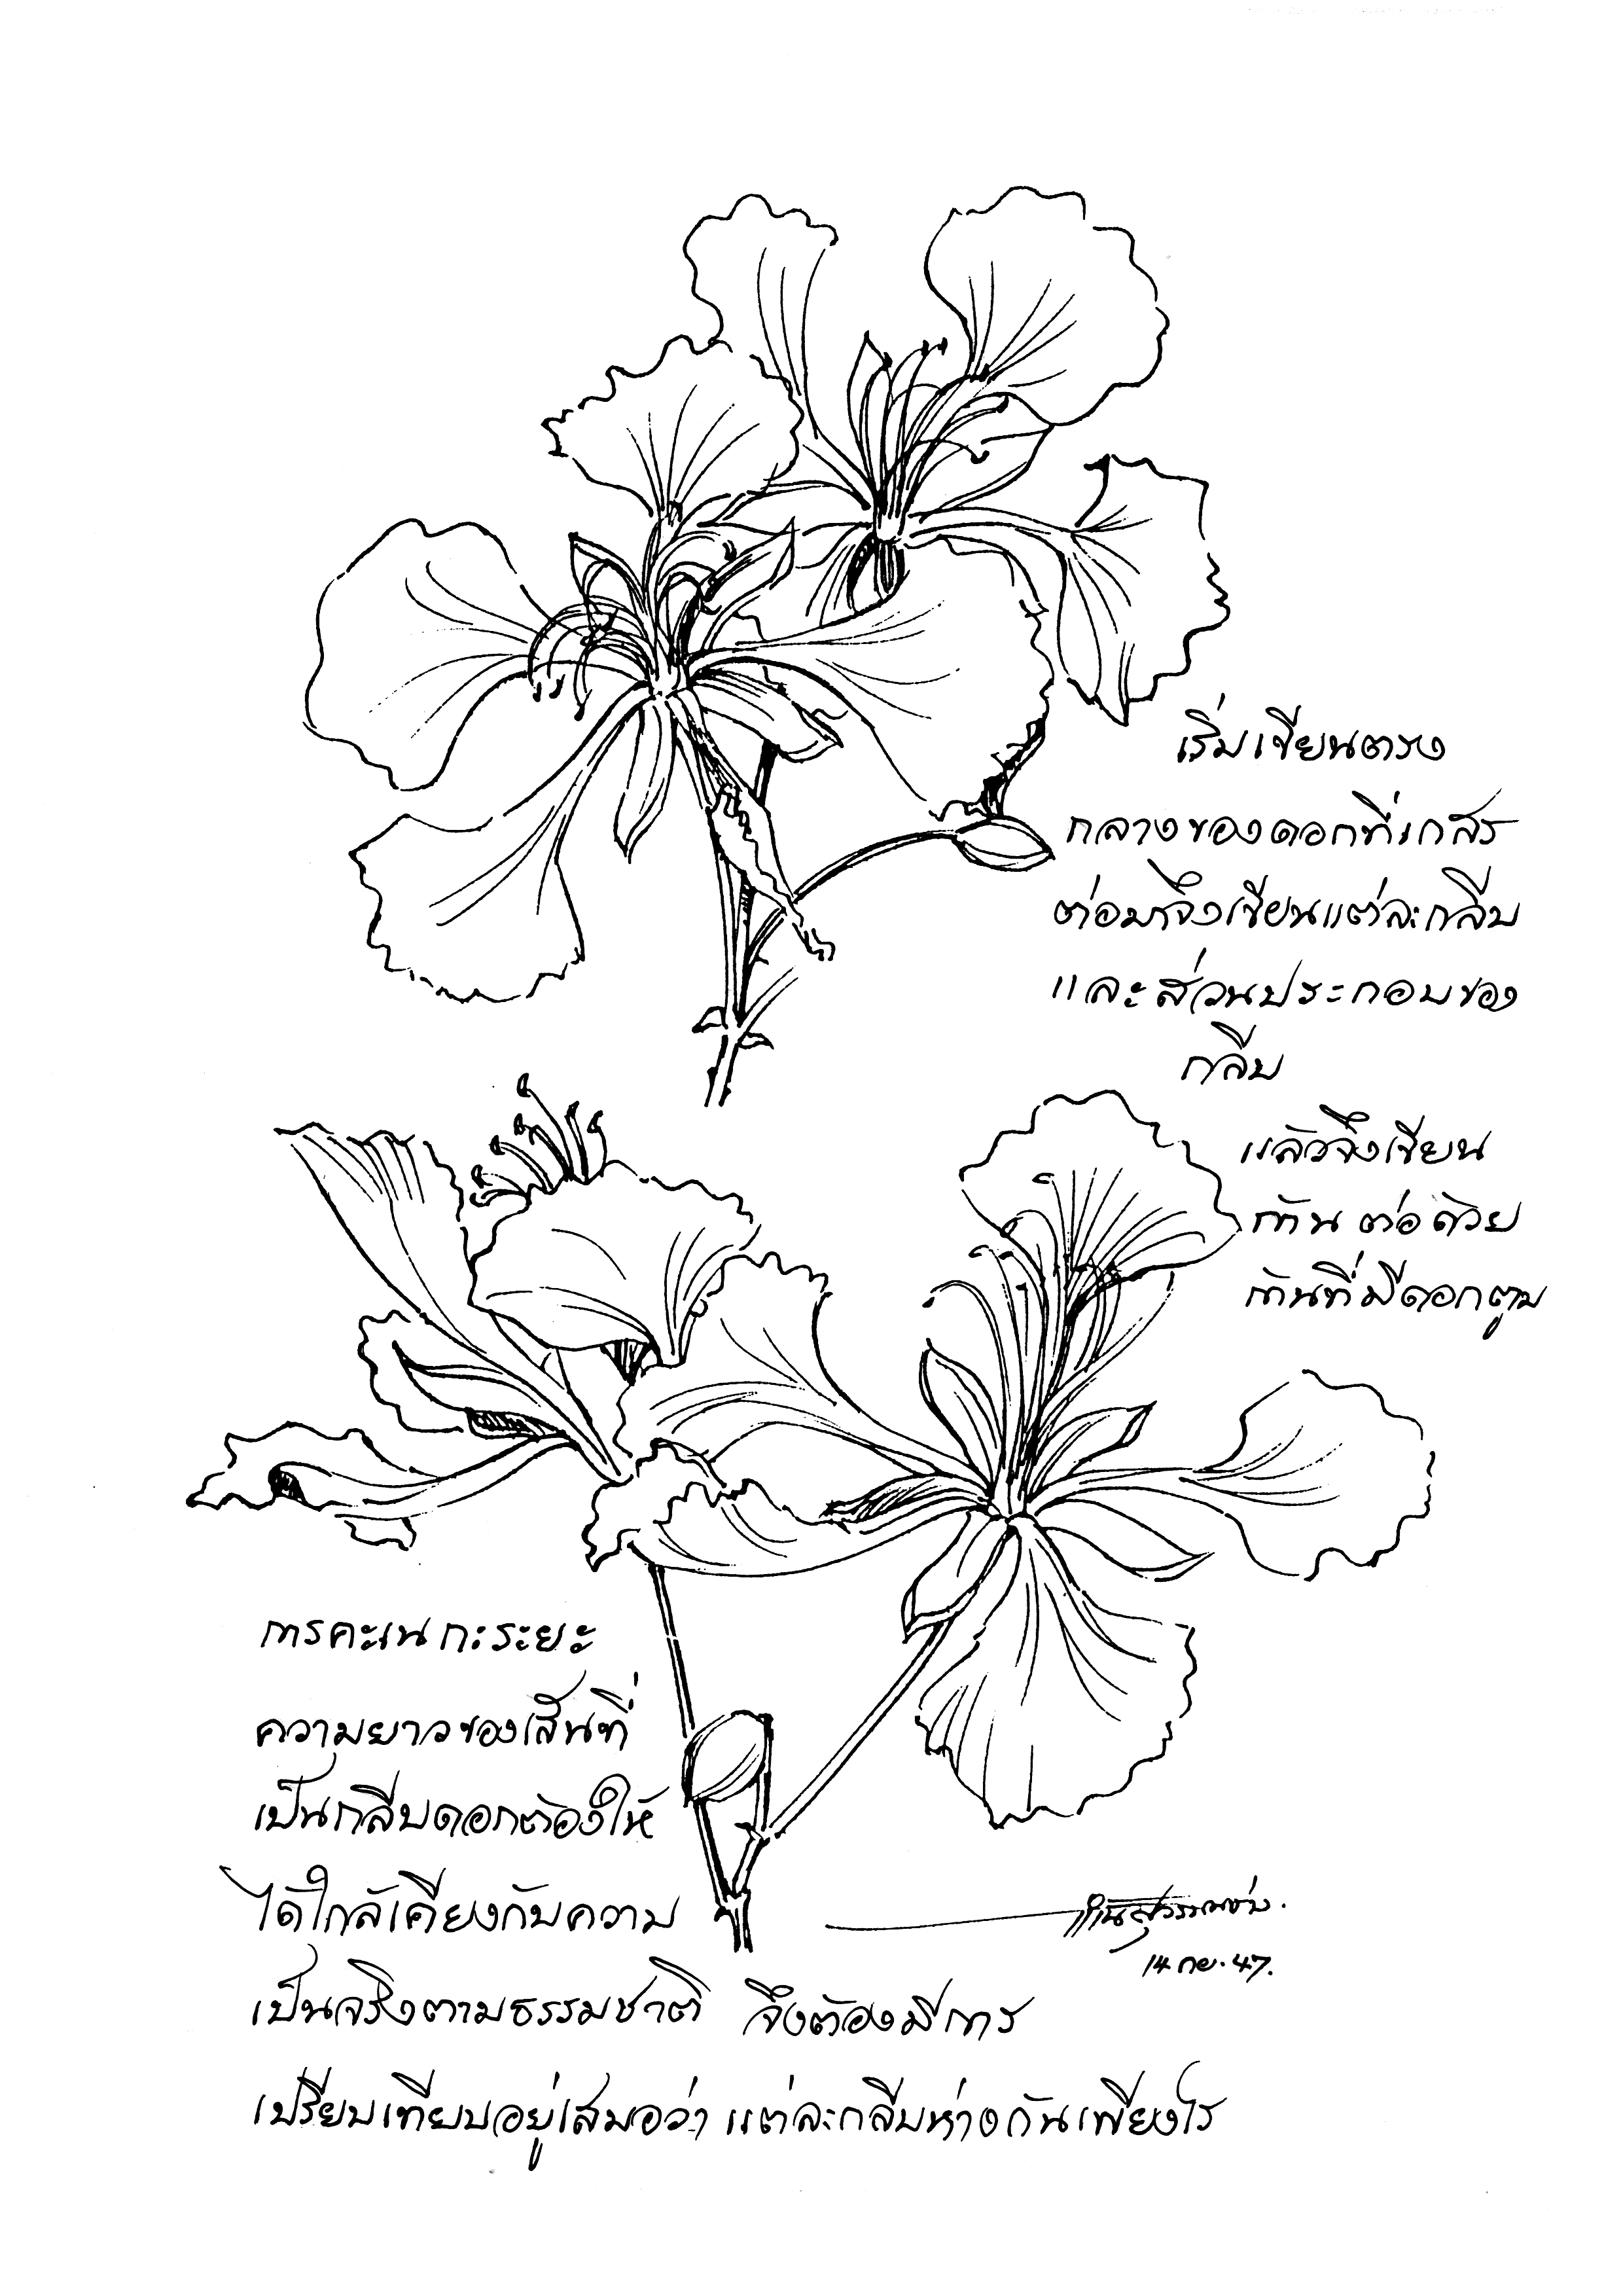 เริ่มเขียนตรง
กลางของดอกที่เกสร
ต่อมาจึงเขียนแต่ละกลีบ
และส่วนประกอบของ
กลีบ
แล้วจึงเขียน
ก้าน ต่อด้วย
ก้านที่มีดอกตูม
การคะเน กะระยะ
ความยาวของเส้นที่
เป็นกลีบดอกต้องให้
ได้ใกล้เคียงกับความ
เป็นจริงตามธรรมชาติ จึงต้องมีการ
เปรียบเทียบอยู่เสมอว่า แต่ละกลีบห่างกันเพียงไร
14 กย. 47.